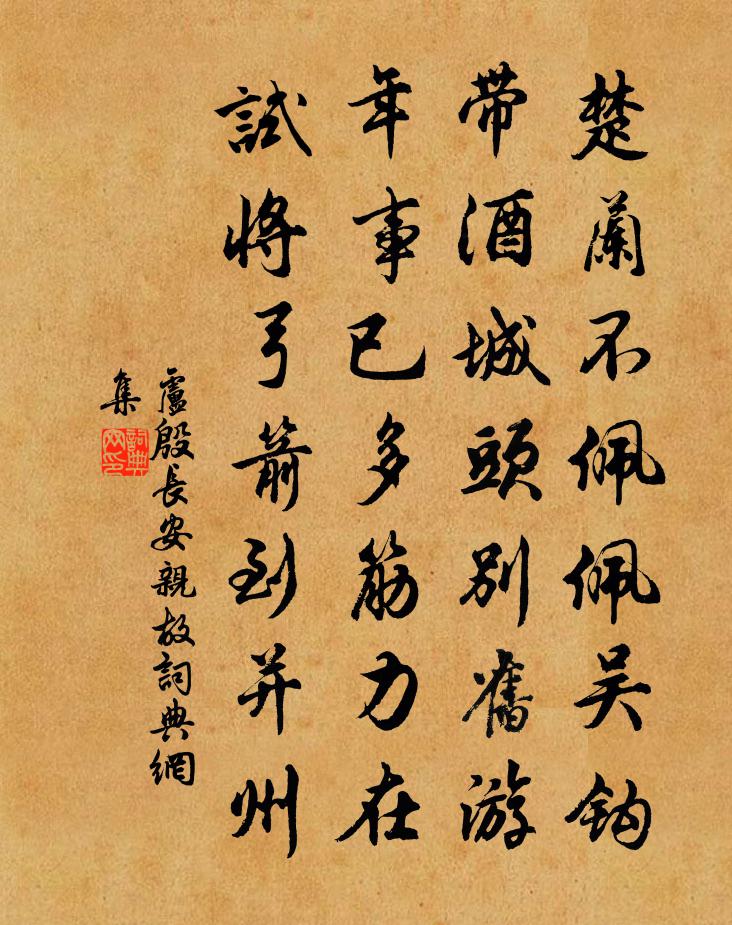 楚蘭不佩佩吴鈎
带酒城頭别舊游
年事已多筋力在
試将弓箭到并州
盧殷長安親故詞典網
集
詞典
网印